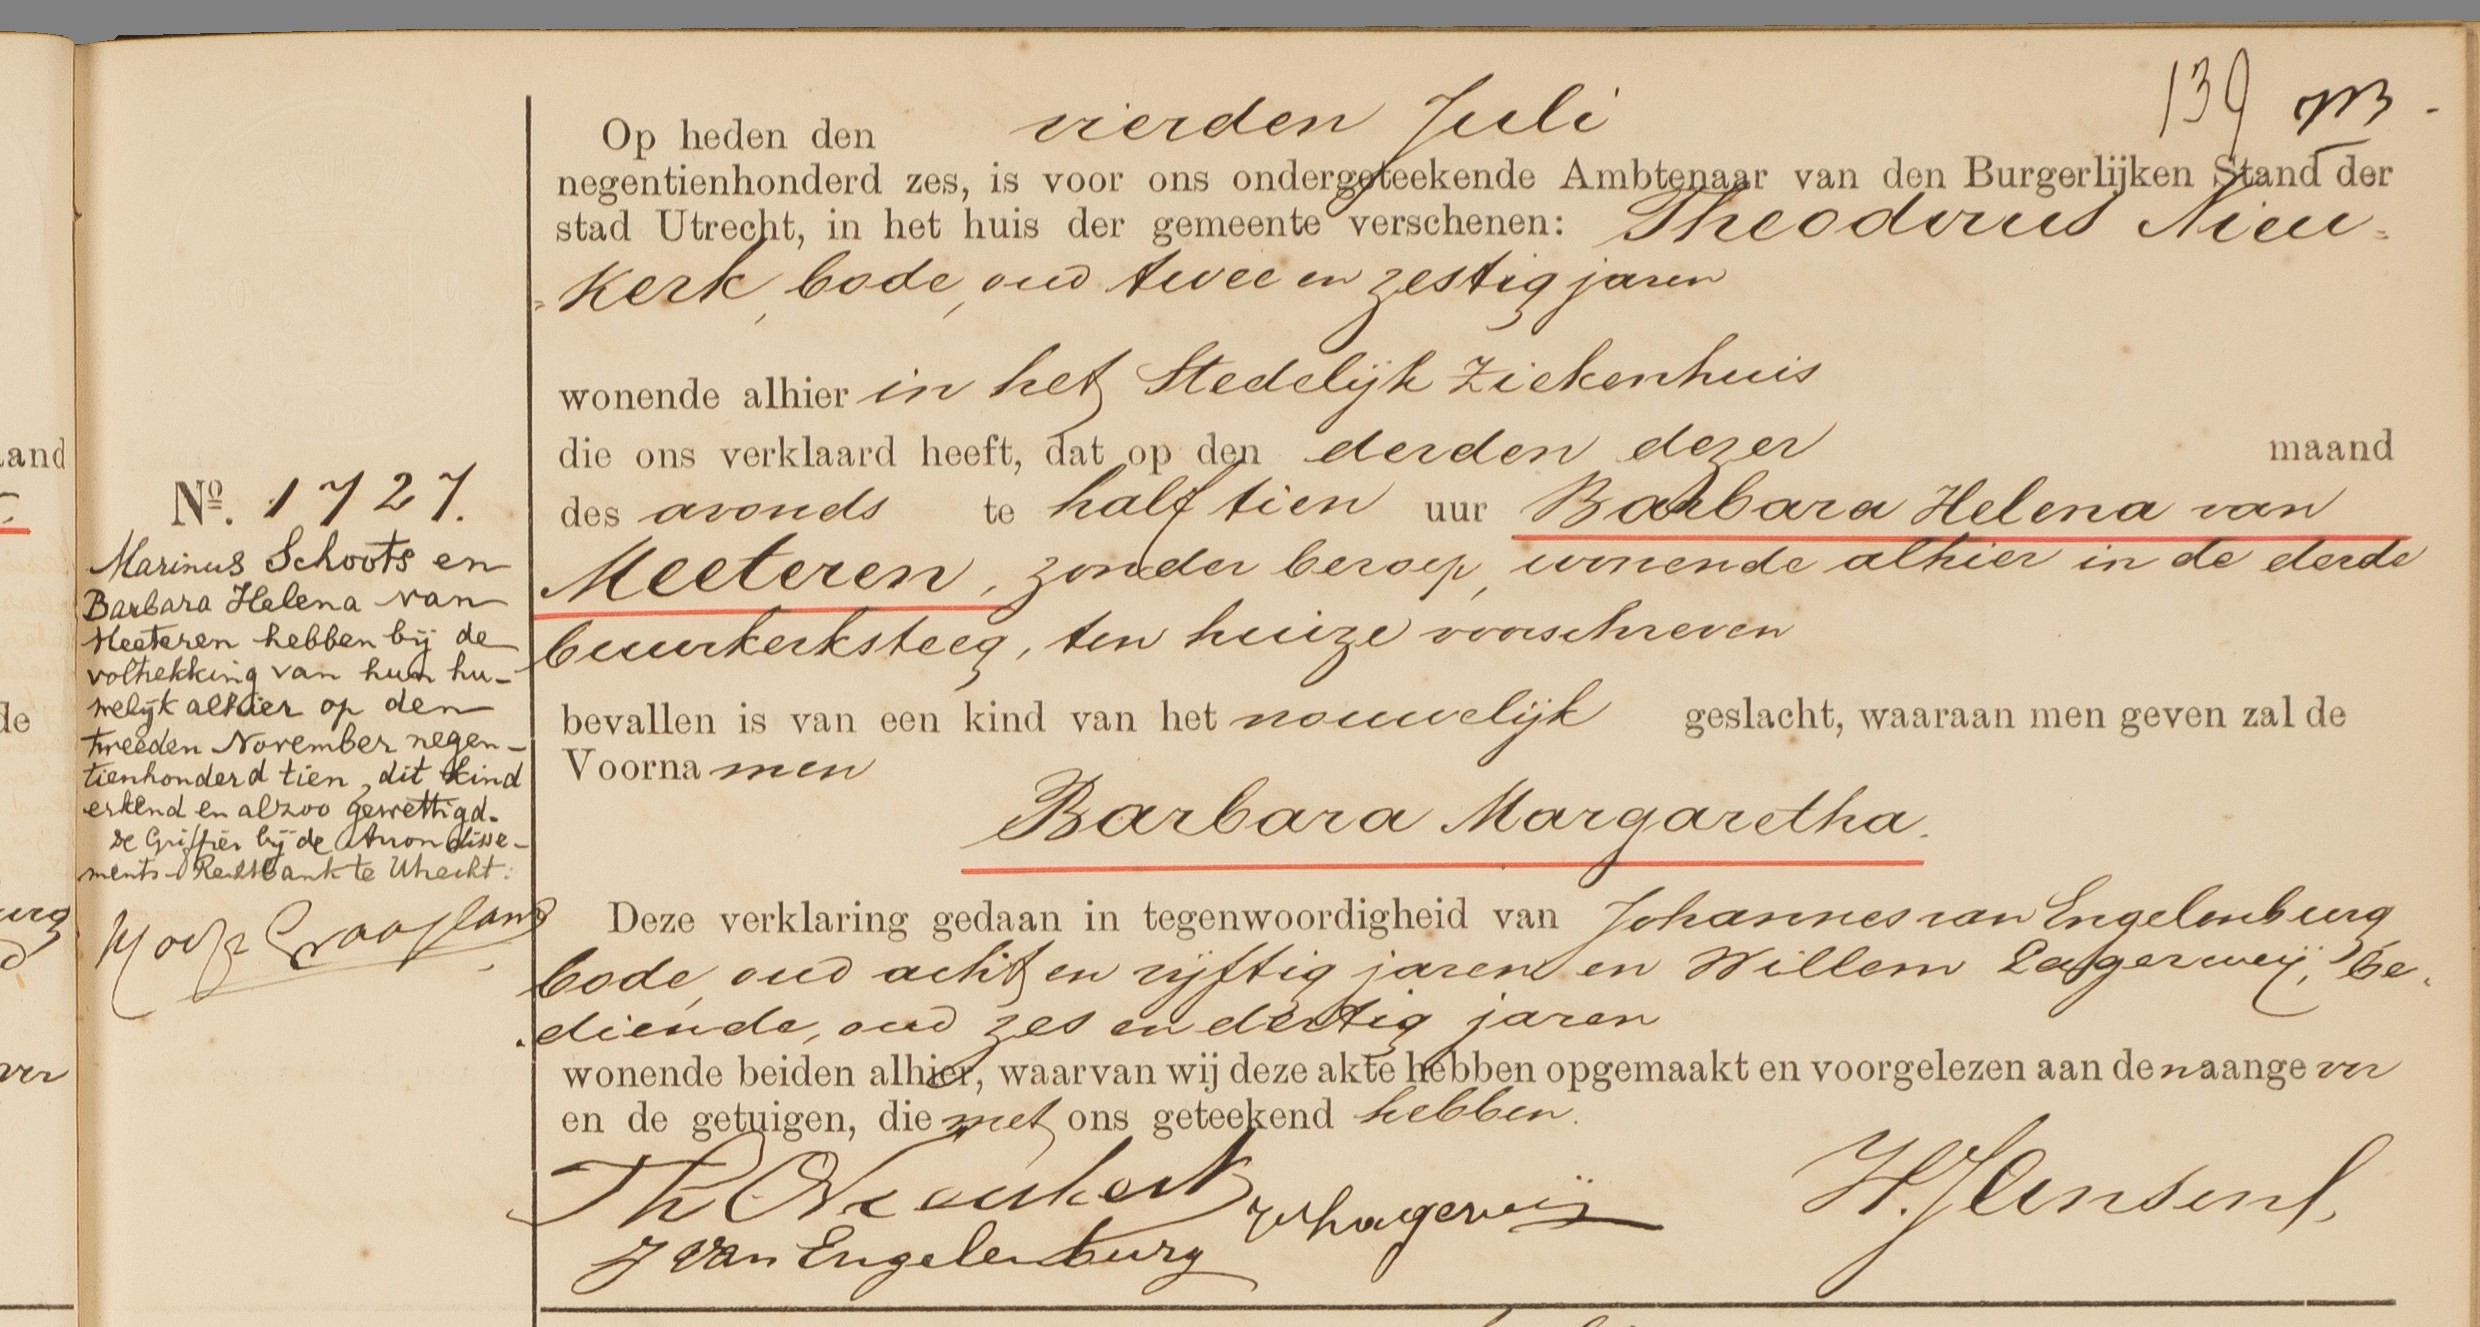 139
Op heden den vierden Juli
negentienhonderd zes, is voor ons ondergeteekende Ambtenaar van den Burgerlijken Stand der
stad Utrecht, in het huis der gemeente verschenen: Theodorus Nieu-
kerk, bode, oud twee en zestig jaren
wonende alhier in het Stedelijk Ziekenhuis
die ons verklaard heeft, dat op den derden dezer maand
des avonds te half tien uur Barbara Helena van
Meeteren, zonder beroep, wonende alhier in de derde
buurkerksteeg, ten huize voorschreven
bevallen is van een kind van het vrouwelijk geslacht, waaraan men geven zal de
Voornamen
Barbara Margaretha.
Deze verklaring gedaan in tegenwoordigheid van Johannes van Engelenburg
bode, oud acht en vijftig jaren en Willem Lagerweij, be-
diende, oud zes en dertig jaren
wonende beiden alhier, waarvan wij deze akte hebben opgemaakt en voorgelezen aan den aangever
en de getuigen, die met ons geteekend hebben.
Th Nieukerk
W Lagerweij
H. Jansen
J van Engelenburg
No. 1727.
Marinus Schoots en
Barbara Helena van
Meeteren hebben bij de
voltrekking van hun hu-
welijk alhier op den
tweeden November negen-
tienhonderd tien, dit kind
erkend en alzoo gewettigd.
De Griffier bij de Arrondisse-
ments-Rechtbank te Utrecht.
and
de
urg
ver